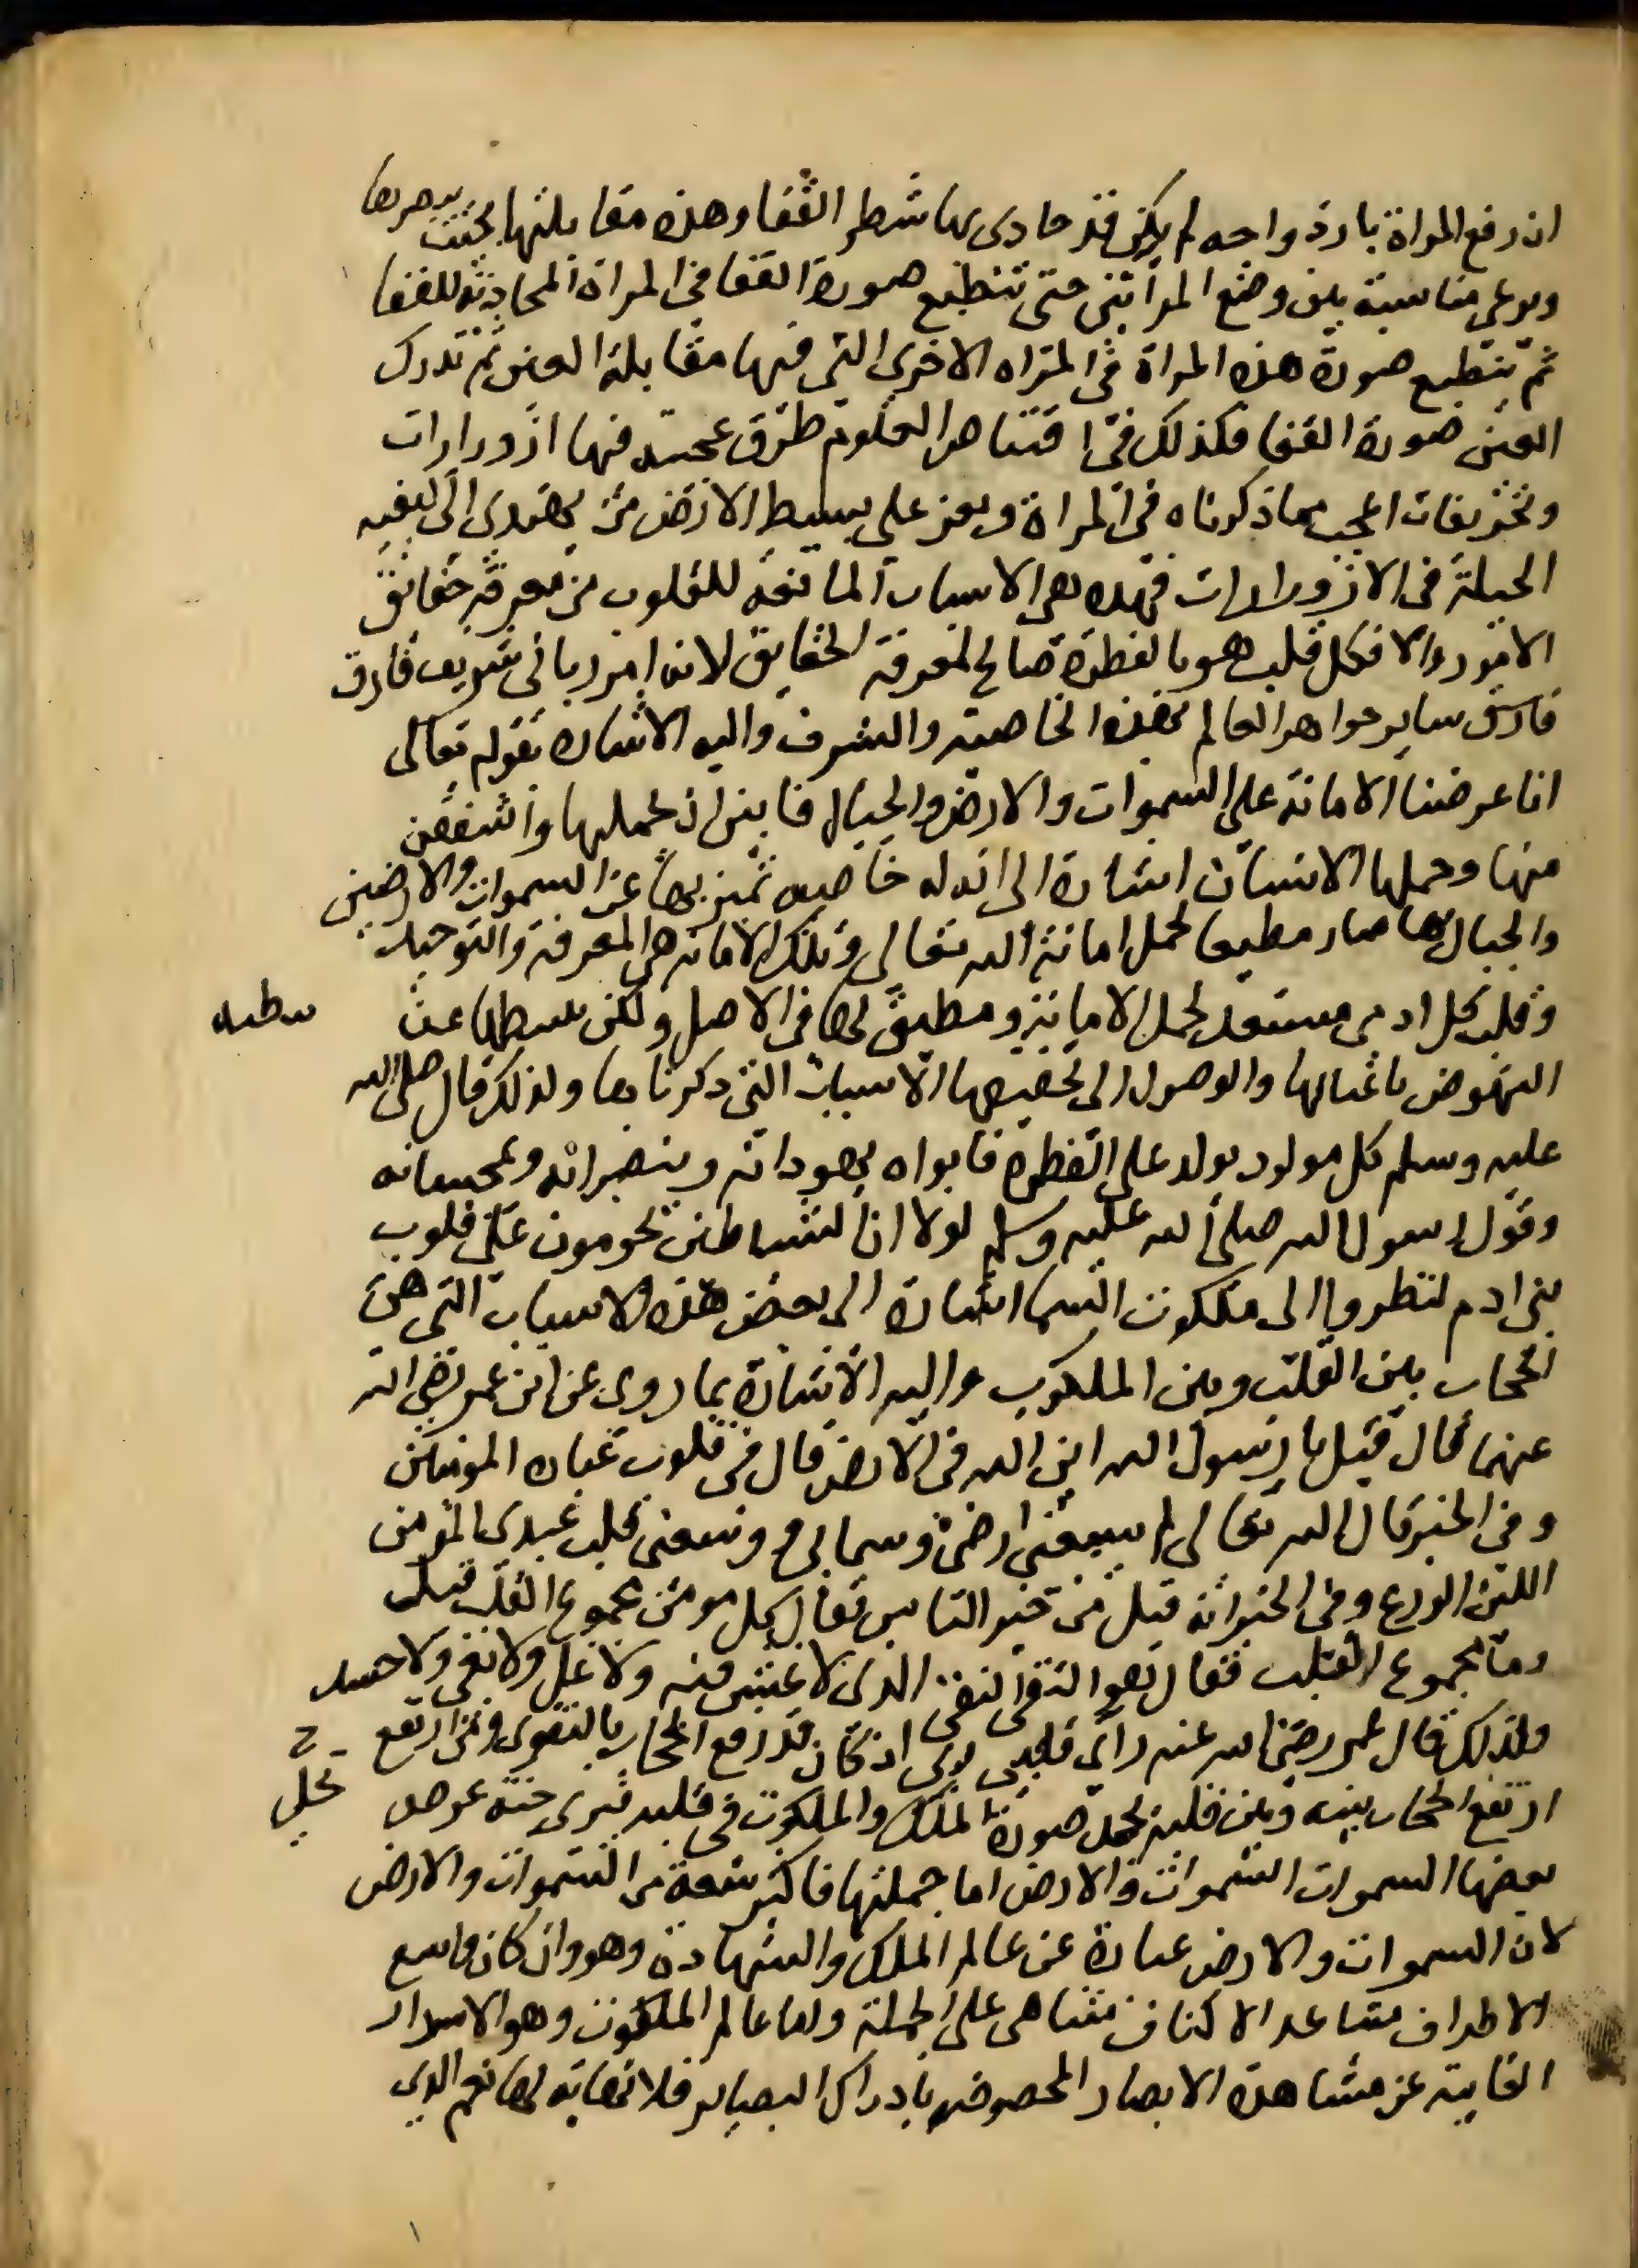 ان رفع المراة بازا واجه لم يكن قد حاذى بها شطر القفا وهذه مقابلتها بحيث يبصرها
ويرعى مناسبة بين وضع المراتين حتى تنطبع صورة القفا في المراة المحاذية للقفا
ثم تنطبع صورة هذه المراة في المراه الاخرى التي فيها مقابلة العين ثم تدرك
العين صورة القفا فكذلك في اقتناص العلوم طرق عجيبه فيها ازورارات
وتحريفات اعجب مما ذكرناه في المراة ويعز على بسيط الارض من يهتدى الى كيفيه
الحيلة في الازورارات فهذه هي الاسباب المانعة للقلوب من معرفة حقائق
الامور والا فكل قلب هو بالفطرة صالح لمعرفة الحقايق لانه امر ربانى شريف فارق
فارق ساير جواهر العالم بهذه الخاصية والشرف واليه الاشارة بقوله تعالى
انا عرضنا الامانة على السموات والارض والجبال فابين ان يحملنها واشفقن
منها وحملها الانسان اشارة الى ان له خاصيه تميز بها عن السموات والارضين
والجبال بها صار مطيقا لحمل امانة الله تعالى وتلك الامانة هي المعرفة والتوحيد
وقلب كل ادمي مستعد لحمل الامانة ومطيق لها في الاصل ولكن يثبطها عن
يثبطه
النهوض باعبائها والوصول الى تحقيقها الاسباب التي ذكرناها ولذلك قال صلى الله
عليه وسلم كل مولود يولد على الفطرة فابواه يهودانه وينصرانه ويمجسانه
وقول رسول الله صلى الله عليه وسلم لولا ان الشياطين يحومون على قلوب
بنى ادم لنظروا الى ملكوت السما اشارة الى بعض هذه الاسباب التي هي
الحجاب بين القلب وبين الملكوت واليه الاشارة بما روى عن ابن عمر رضي الله
عنهما قال قيل يا رسول الله اين الله في الارض قال في قلوب عباده المومنين
وفي الخبر قال الله تعالى لم يسعنى ارضى وسمائى ووسعنى قلب عبدى المومن
اللين الوادع وفي الخبر انه قيل من خير الناس فقال كل مومن مخموم القلب قيل
وما مخموم القلب فقال هو التقى النقى الذى لا غش فيه ولا غل ولا بغى ولا حسد
ولذلك قال عمر رضي الله عنه راى قلبى ربى اذ كان قد رفع الحجاب بالتقوى ومن ارتفع
ارتفع الحجاب بينه وبين قلبه تجلى صورة الملك والملكوت في قلبه فيرى جنة عرض
تجلى
بعضها السموات السموات والارض اما جملتها فاكثر سعة من السموات والارض
لان السموات والارض عبارة عن عالم الملك والشهادة وهو وان كان واسع
الاطراف متباعد الاكناف متناهى على الجملة واما عالم الملكوت وهو الاسرار
الغايبة عن مشاهدة الابصار المخصوصه بادراك البصاير فلا نهاية لها نعم الذى